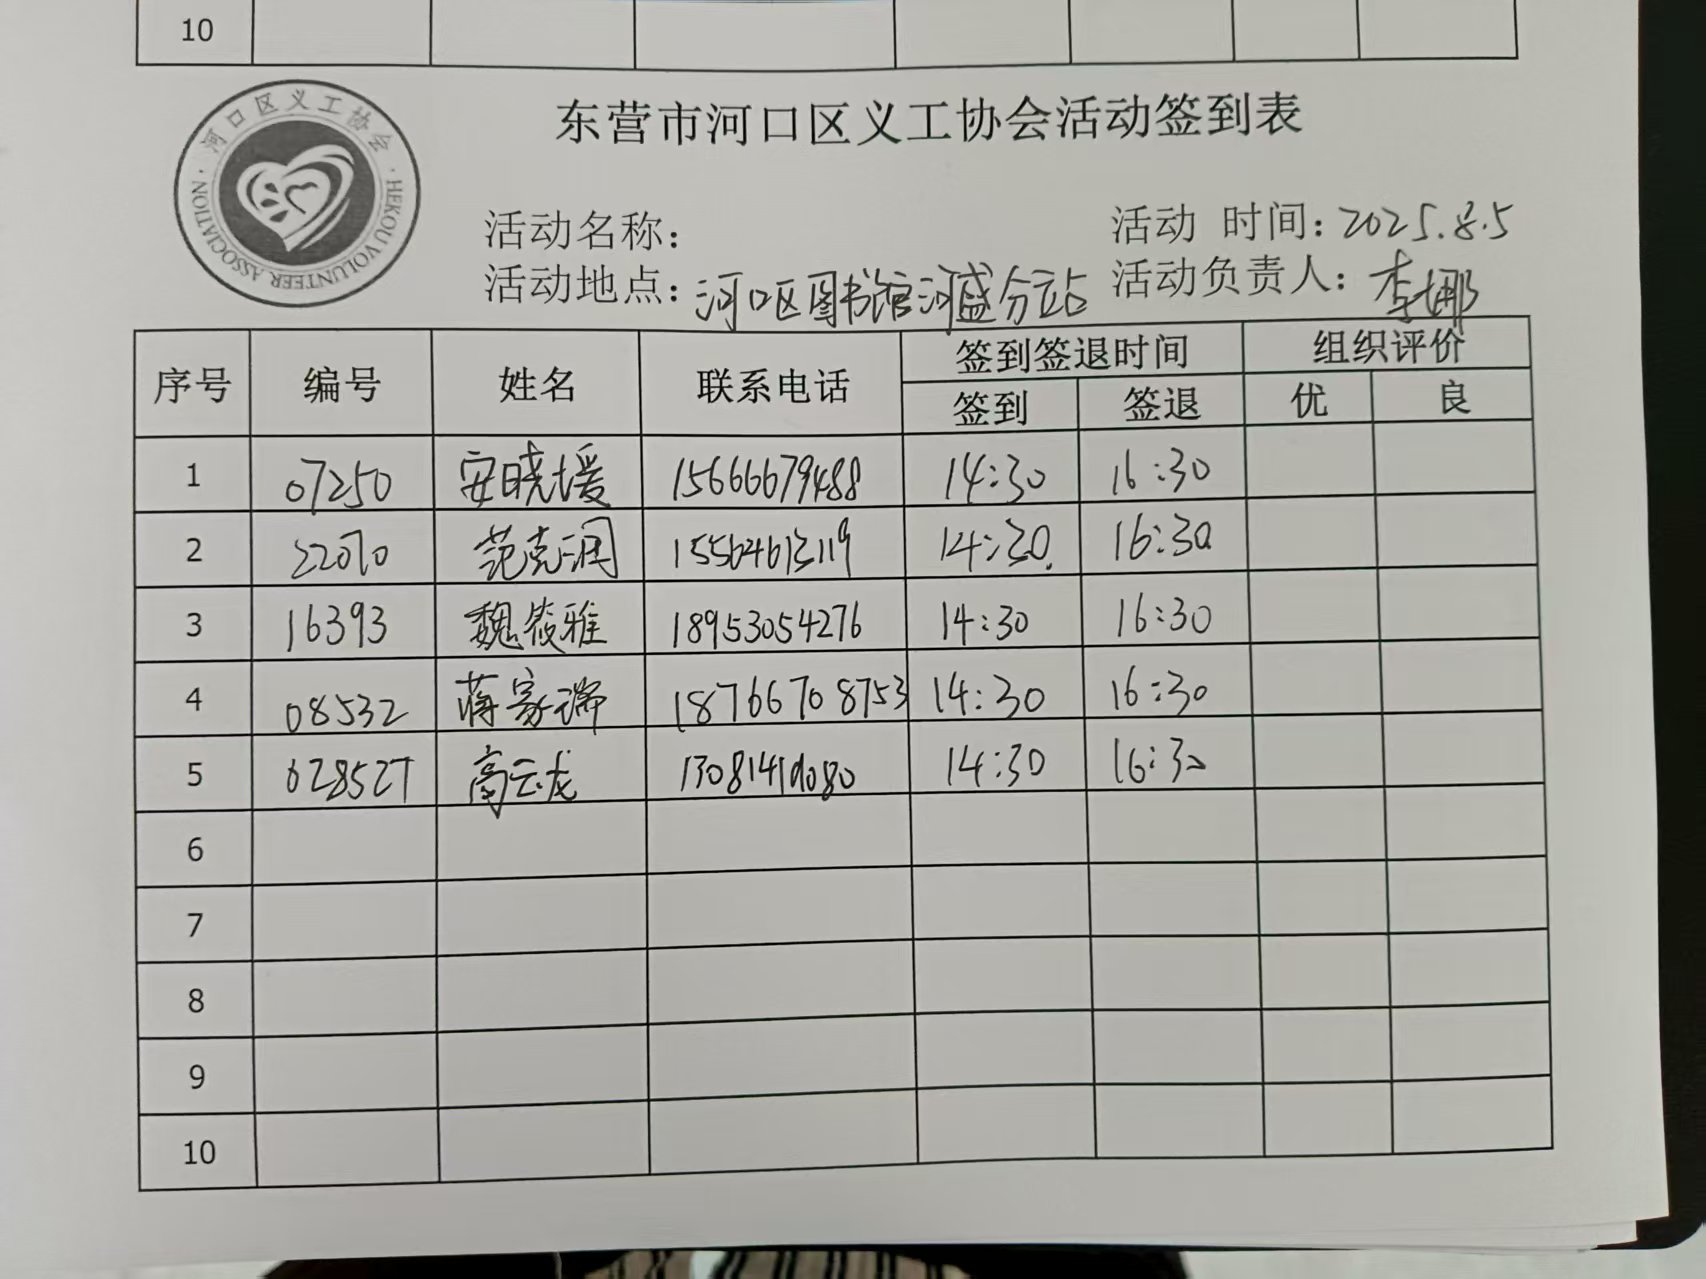 10
河口区义工协会
HEKOU VOLUNTEER ASSOCIATION
东营市河口区义工协会活动签到表
活动名称： 活动 时间：2025.8.5
活动地点：河口区图书馆河盛分站 活动负责人：李娜
序号 编号 姓名 联系电话 签到签退时间 组织评价
签到 签退 优 良
1 07250 安晓媛 15666679488 14:30 16:30
2 22070 范克润 14:30 16:30
3 16393 魏筱雅 18953054276 14:30 16:30
4 08532 蒋家瑞 18766708753 14:30 16:30
5 028527 高云龙 14:30 16:30
6
7
8
9
10